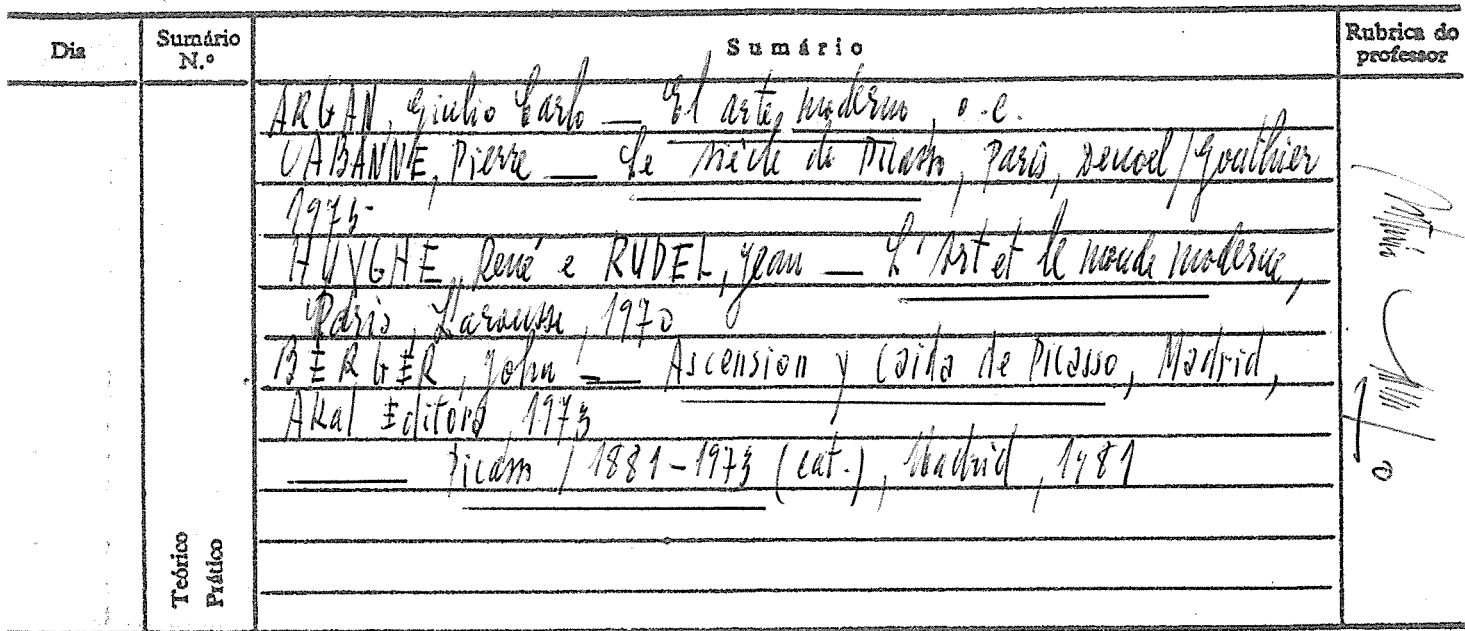 Dia
Sumário N.º
Sumário
Rubrica do professor
ARGAN, Giulio Carlo — El arte moderno, o.c.
CABANNE, Pierre — Le siècle de Picasso, Paris, Denoel/Gonthier
1975
HUYGHE, René e RUDEL, Jean — L'Art et le monde moderne,
Paris, Larousse, 1970
BERGER, John — Ascension y Caida de Picasso, Madrid,
Akal Editora, 1973
——— Picasso / 1881-1973 (cat.), Madrid, 1981
Teórico
Prático